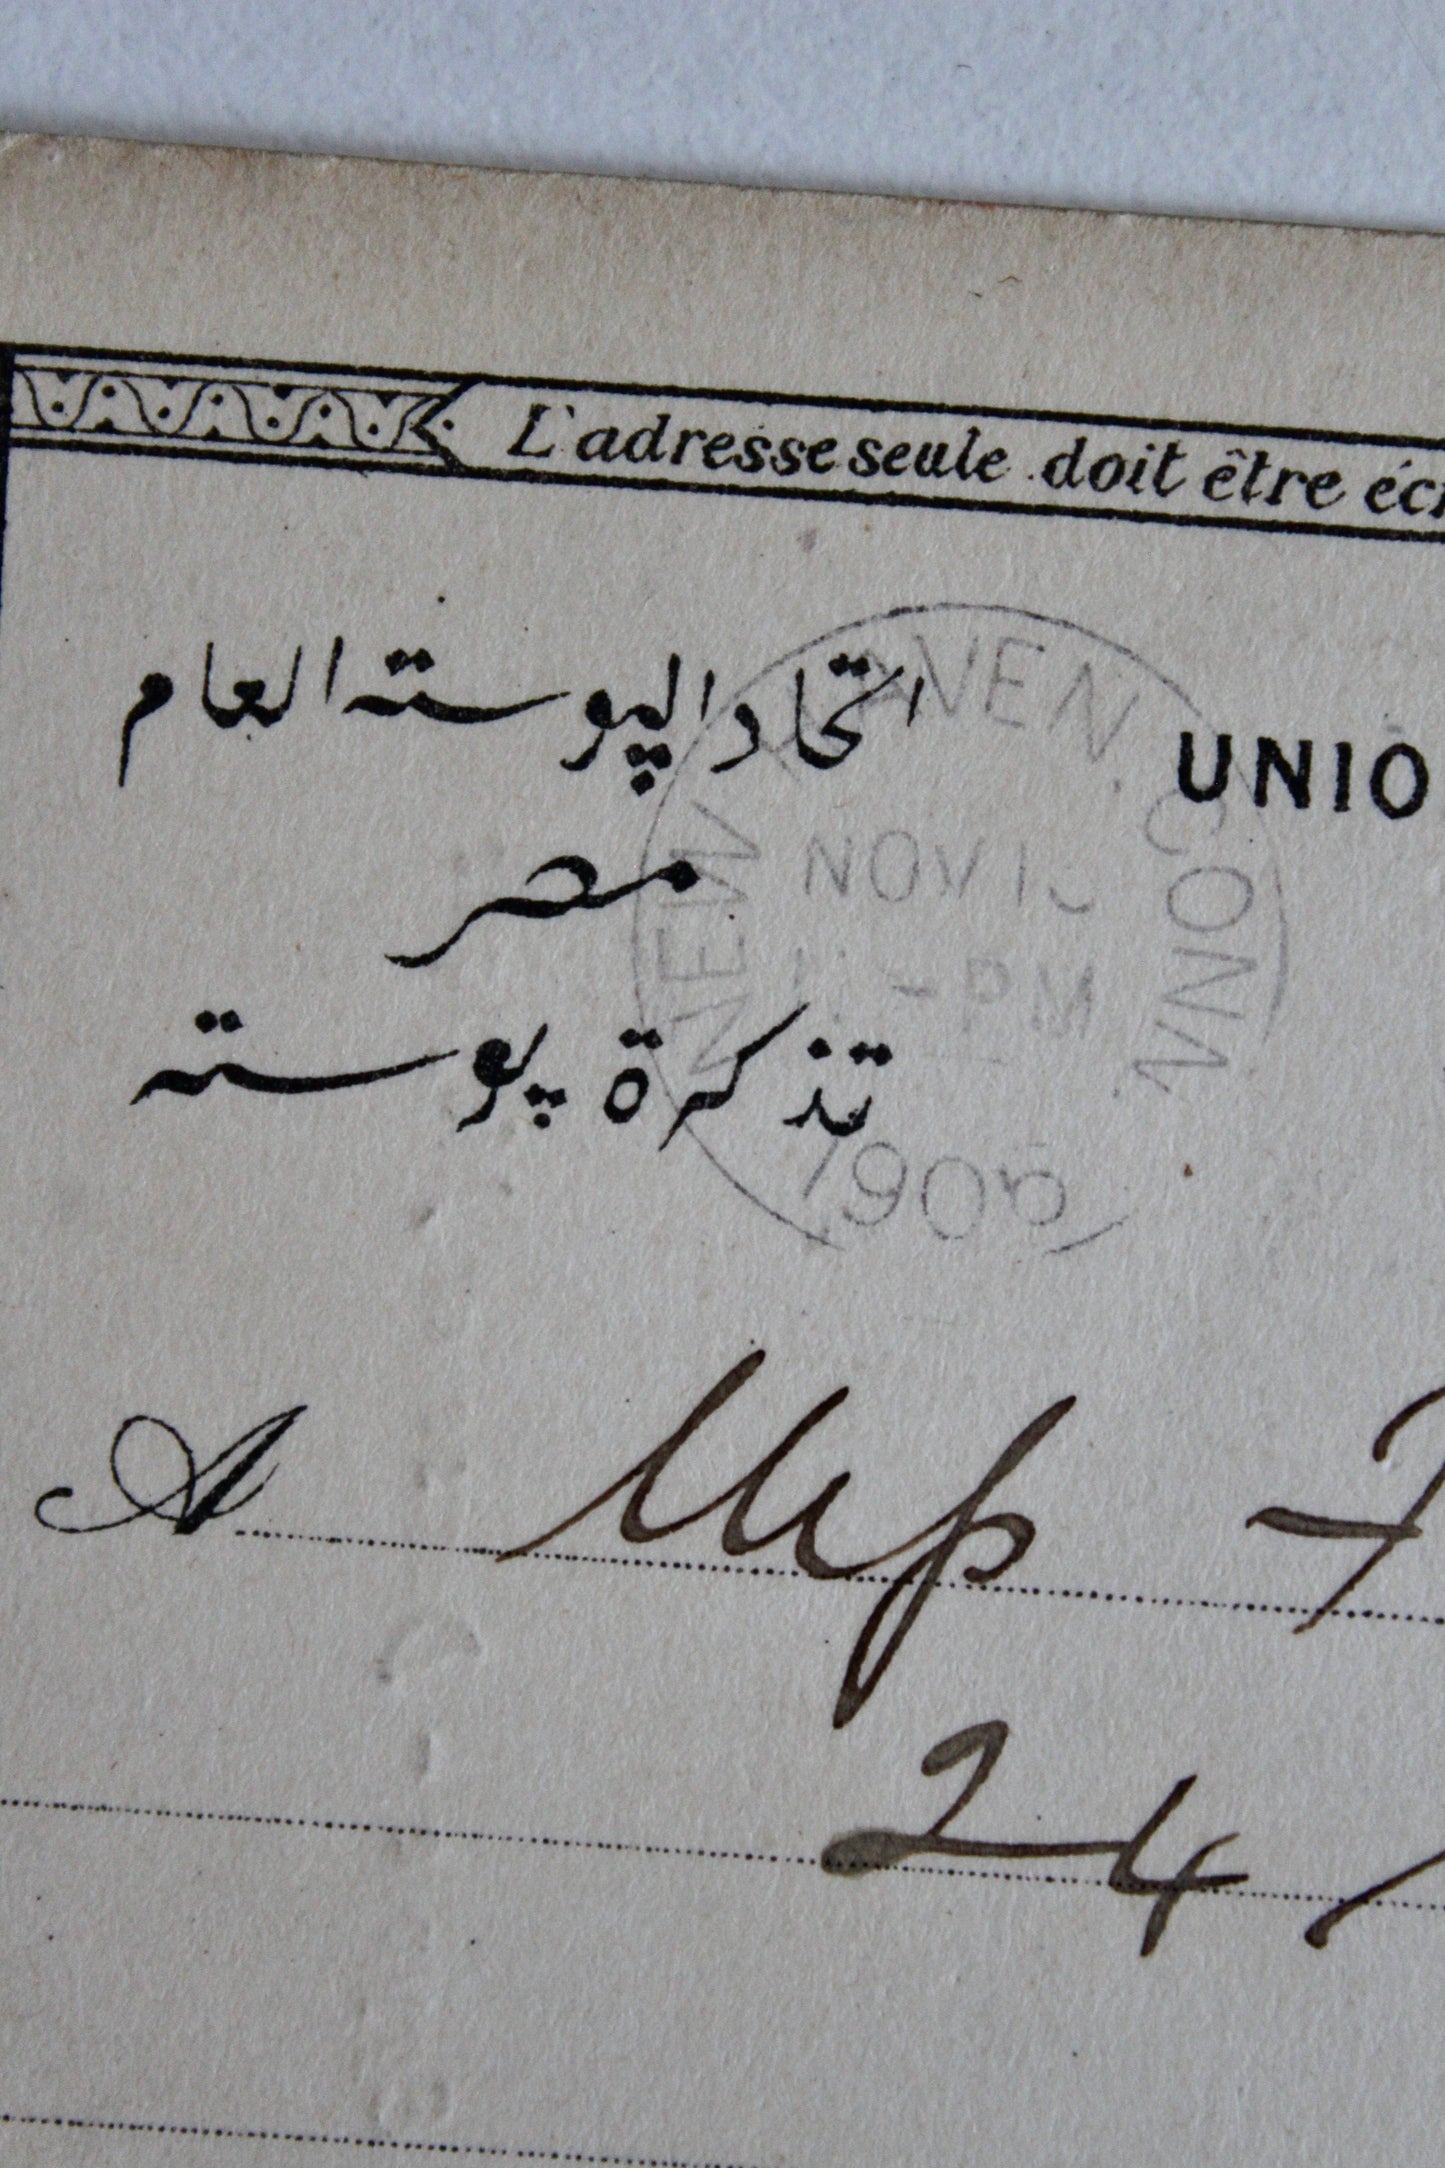 L'adresse seule doit être
اتحاد الپوسته العام
مصر
تذكرة پوسته
UNIO
NEW HAVEN. CONN
NOV 1
PM
1905
A
24